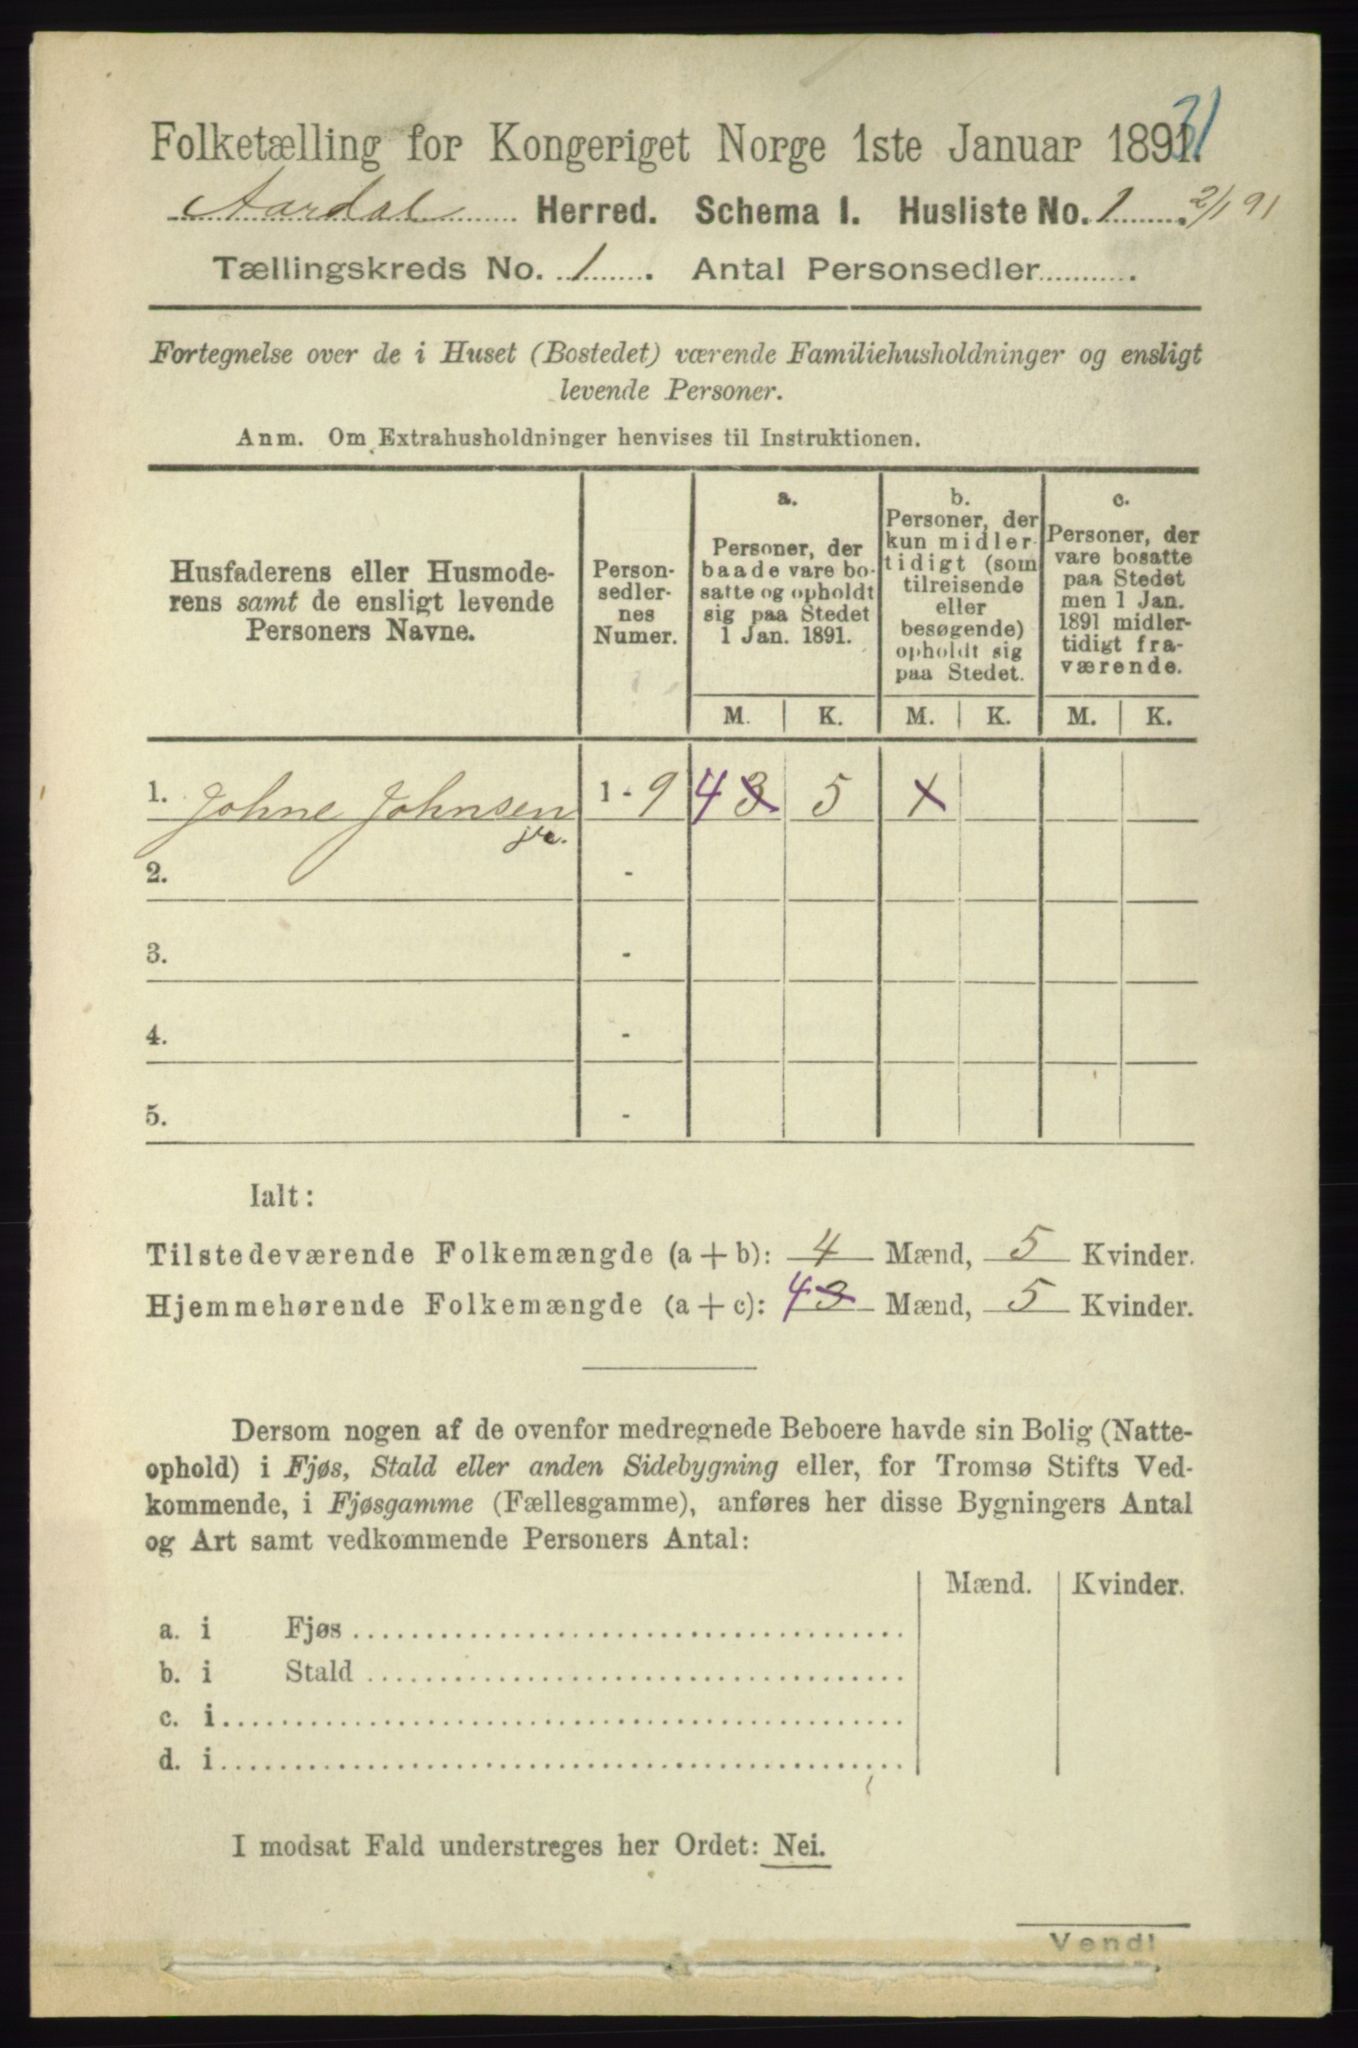 31
Folketælling for Kongeriget Norge 1ste Januar 1891.
Aardal Herred. Schema I. Husliste No. 1. 2/1 91
Tællingskreds No. 1. Antal Personsedler
Fortegnelse over de i Huset (Bostedet) værende Familiehusholdninger og ensligt
levende Personer.
Anm. Om Extrahusholdninger henvises til Instruktionen.
Husfaderens eller Husmode-
rens samt de ensligt levende
Personers Navne.
Person-
sedler-
nes
Numer.
a.
Personer, der
baade vare bo-
satte og opholdt
sig paa Stedet
1 Jan. 1891.
b.
Personer, der
kun midler-
tidigt (som
tilreisende
eller
besøgende)
opholdt sig
paa Stedet.
c.
Personer, der
vare bosatte
paa Stedet
men 1 Jan.
1891 midler-
tidigt fra-
værende.
M. K. M. K. M. K.
1. Johne Johnsen 1 - 9 4 3 5
2. -
3. -
4. -
5. -
Ialt:
Tilstedeværende Folkemængde (a + b): 4 Mænd, 5 Kvinder.
Hjemmehørende Folkemængde (a + c): 4 3 Mænd, 5 Kvinder.
Dersom nogen af de ovenfor medregnede Beboere havde sin Bolig (Natte-
ophold) i Fjøs, Stald eller anden Sidebygning eller, for Tromsø Stifts Ved-
kommende, i Fjøsgamme (Fællesgamme), anføres her disse Bygningers Antal
og Art samt vedkommende Personers Antal:
Mænd. Kvinder.
a. i Fjøs
b. i Stald
c. i
d. i
I modsat Fald understreges her Ordet: Nei.
Vend!